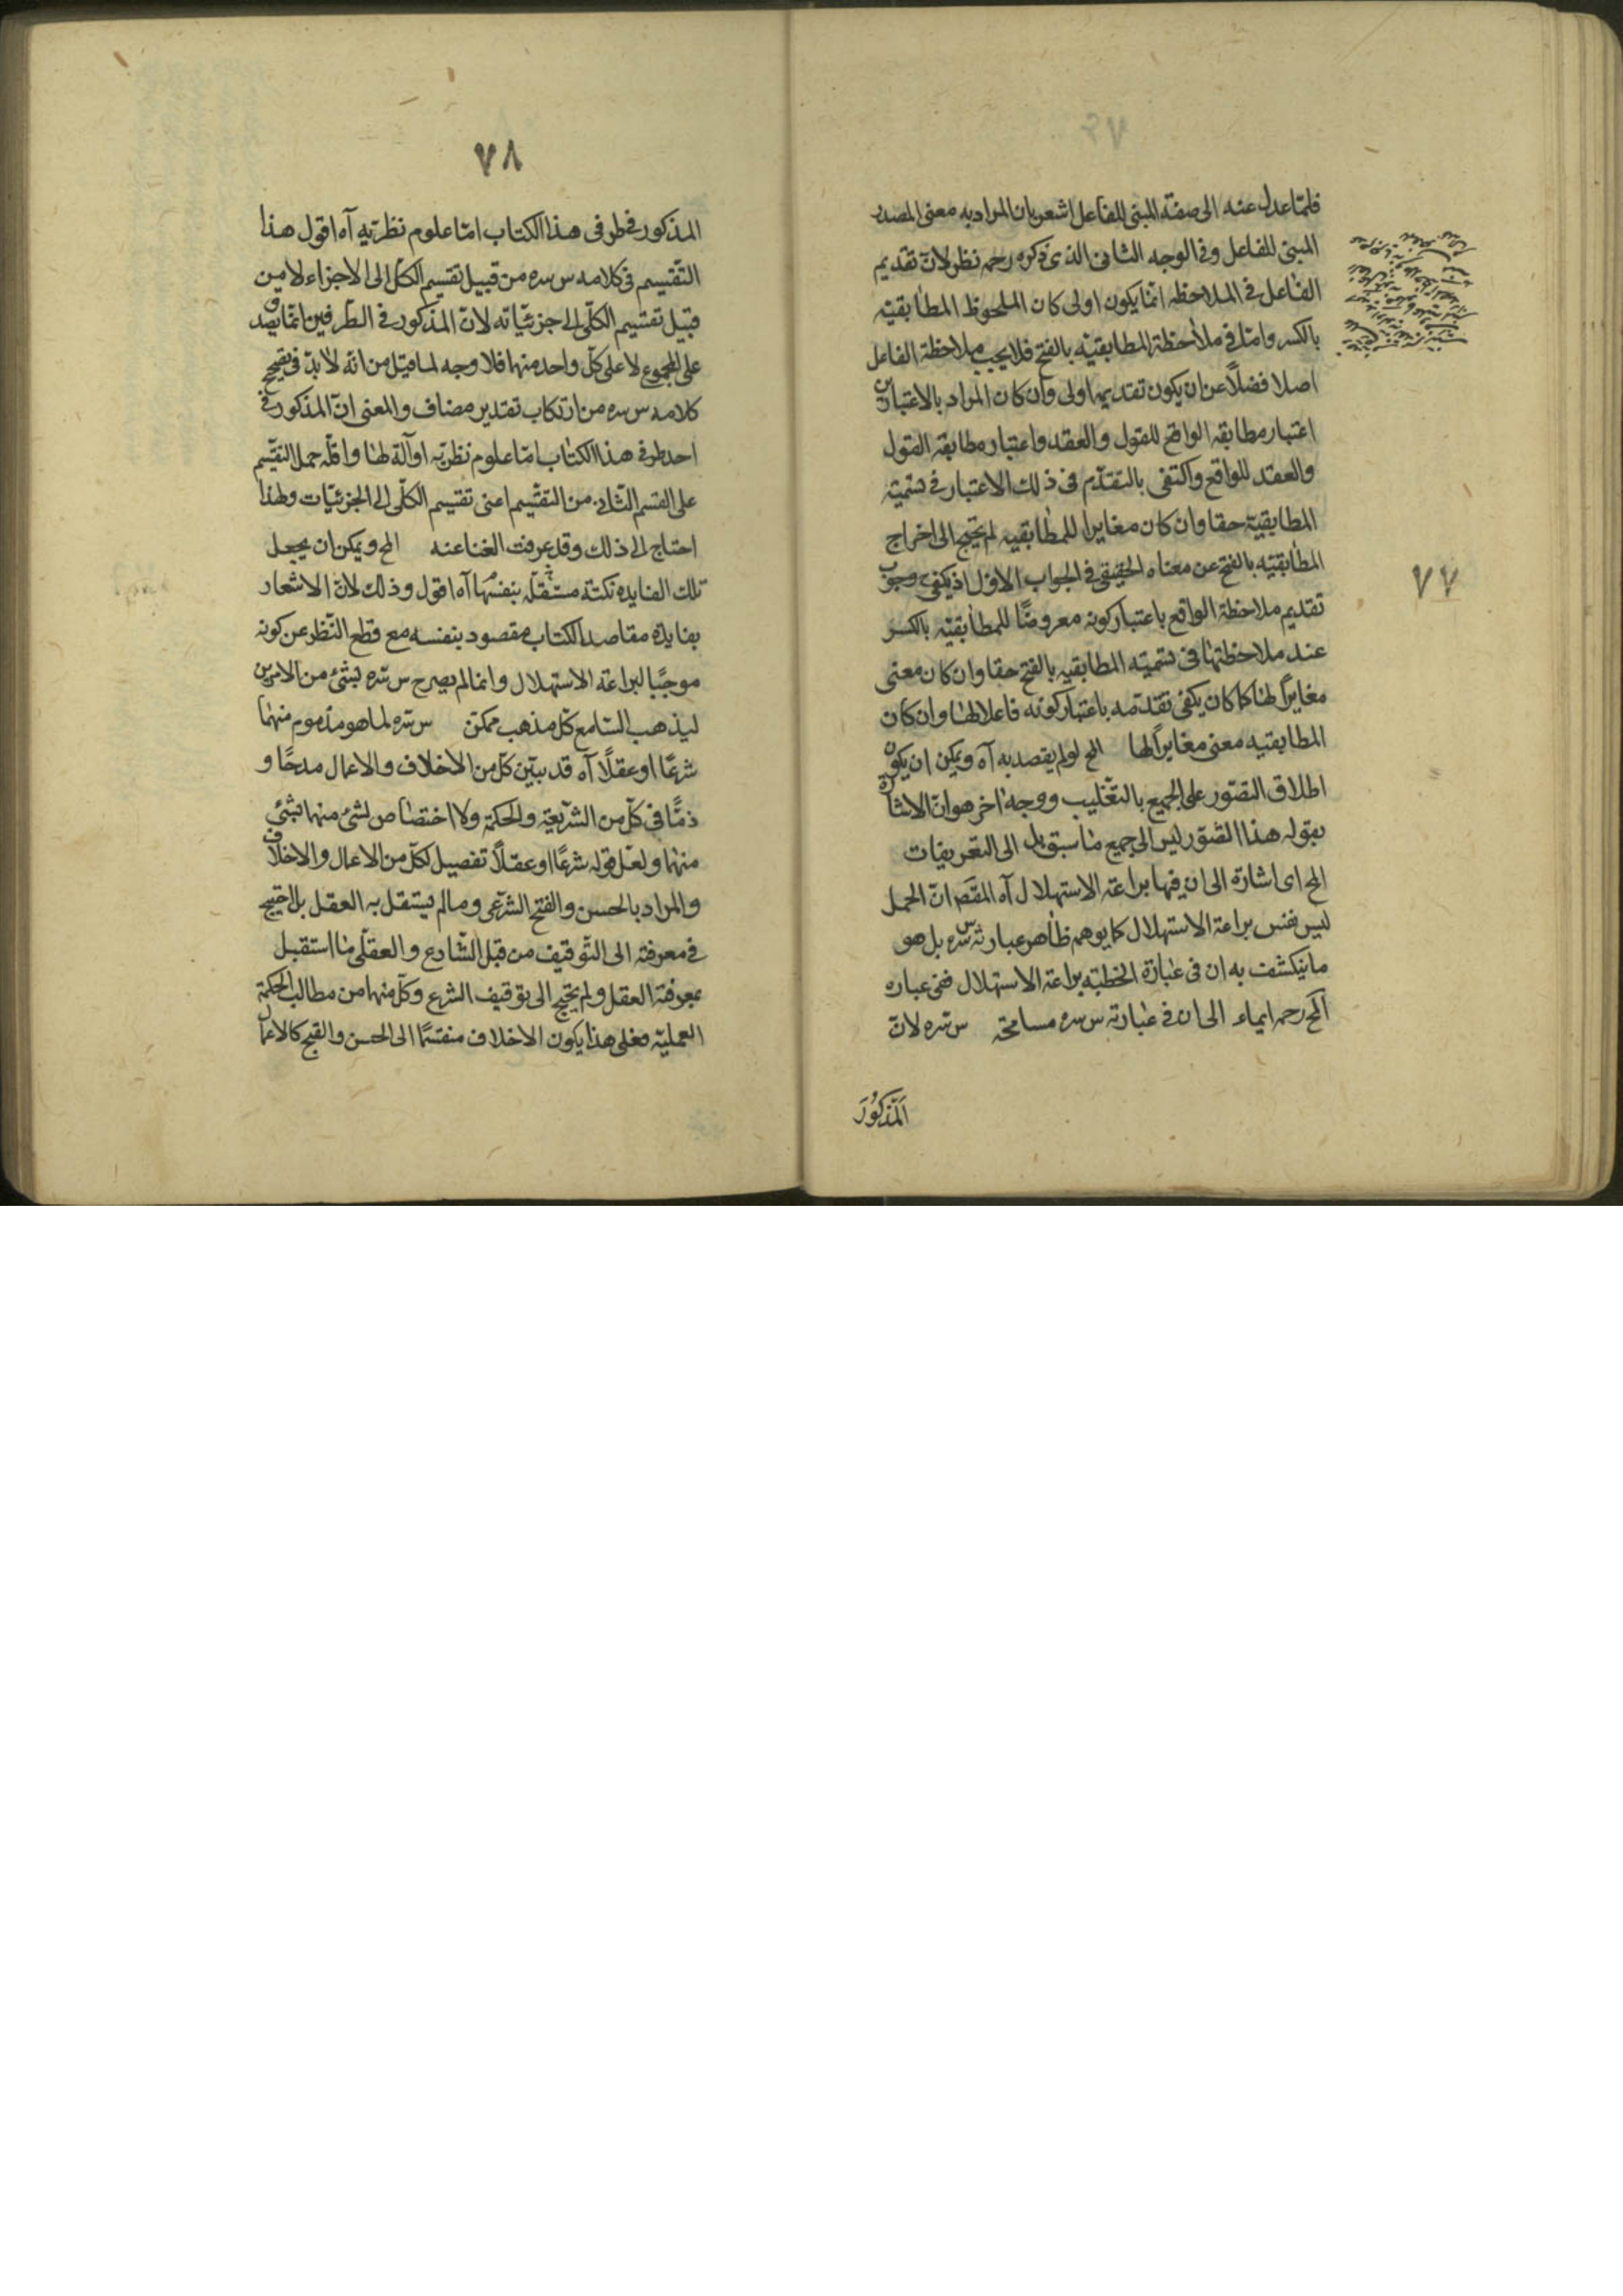 فلمّا عدل عنه الى صفة المبنى للفاعل اشعر بان المراد به معنى المصدر
المبنى للفاعل وفى الوجه الثانى الذى ذكره رحمه نظر لانّ تقديم
الفاعل فى الملاحظه انّما يكون اولى كان الملحوظ المطابقيّه
بالكسر وامّا فى ملاحظة المطابقيّه بالفتح فلا يجب ملاحظة الفاعل
اصلا فضلاً عن ان يكون تقديمها اولى وان كان المراد بالاعتبارين
اعتبار مطابقه الواقع للقول والعقد واعتبار مطابقه القول
والعقد للواقع واكتفى بالتقدّم فى ذلك الاعتبار فى تسميته
المطابقيّة حقا وان كان مغايرا للمطابقيه لم يحتج الى اخراج
المطابقيّه بالفتح عن معناه الحقيقى فى الجواب الاوّل اذ يكفى وجوب
تقديم ملاحظة الواقع باعتبار كونه معروضًا للمطابقيّه بالكسر
عند ملاحظتها فى تسميته المطابقيه بالفتح حقا وان كان معنى
مغايراً لها كما كان يكفى تقدّمه باعتبار كونه فاعلا لها وان كان
المطابقيه معنى مغايراً لها المح لو لم يقصد به آه ويمكن ان يكون
اطلاق التصّور على الجميع بالتغّليب ووجه اخر هو انّ الاشارة
بقوله هذا التصّور ليس الى جميع ما سبق بل الى التعريفات
المح اى اشارة الى ان فيها براعة الاستهلال آه المقصَ انّ الحمل
ليس نفس براعة الاستهلال كما يوهم ظاهر عبارته س سره بل هو
ما ينكشف به ان فى عبارة الخطبه براعة الاستهلال ففى عباره
المح رحمه ايماء الى ان فى عبارته س سره مسامحة س سّره لانّ
اَلْمَذكُورَ
٧٧
٧٨
المذكور فى طرفى هذا الكتاب امّا علوم نظريّه آه اقول هذا
التّقسيم فى كلامه س سره من قبيل تقسيم الكّل الى الاجزاء لا من
قبيل تقسيم الكلّى الى جزئيّاته لانّ المذكور فى الطّرفين انّما يصدق
على المجموع لا على كلّ واحد منها فلا وجه لما قيل من انّه لا بدّ فى تصحيح
كلامه س سره من ارتكاب تقدير مضاف والمعنى انّ المذكور فى
احد طرفى هذا الكتاب امّا علوم نظريّه او آلة لها واقلّه حمل التقسّيم
على القسم الثّانى من التقسّيم اعنى تقسيم الكلّى الى الجزئيّات ولهذا
احتاج الى ذلك وقد عرفت الغنا عنه المح ويمكن ان يجعل
تلك الفايده نكتة مستقّله بنفسها آه اقول وذلك لانّ الاشعار
بفايدة مقاصد الكتاب مقصود بنفسه مع قطع النّظر عن كونه
موجبًا لبراعة الاستهلال وانما لم يصرح س سّره بشئ من الامرين
ليذهب السّامع كلّ مذهب ممكن س سّره لما هو مذموم منهما
شرعًا او عقلاً آه قد يبيّن كلّ من الاخلاق والاعمال مدحًا و
ذمًّا فى كلّ من الشّريعة والحكمة ولا اختصاص لشئ منها بشئ
منها ولعلّ قوله شرعًا او عقلاً تفصيل لكلّ من الاعمال والاخلاق
والمراد بالحسن والقبح الشّرعى وما لم يستقل به العقل بل احتيج
فى معرفته الى التّوقيف من قبل الشّارع والعقلّى ما استقبل
بمعرفة العقل ولم يحتج الى توقيف الشرع وكلّ منها من مطالب الحكمة
العمليّه فعلى هذا يكون الاخلاق منقسمًا الى الحسن والقبح كالاعمال